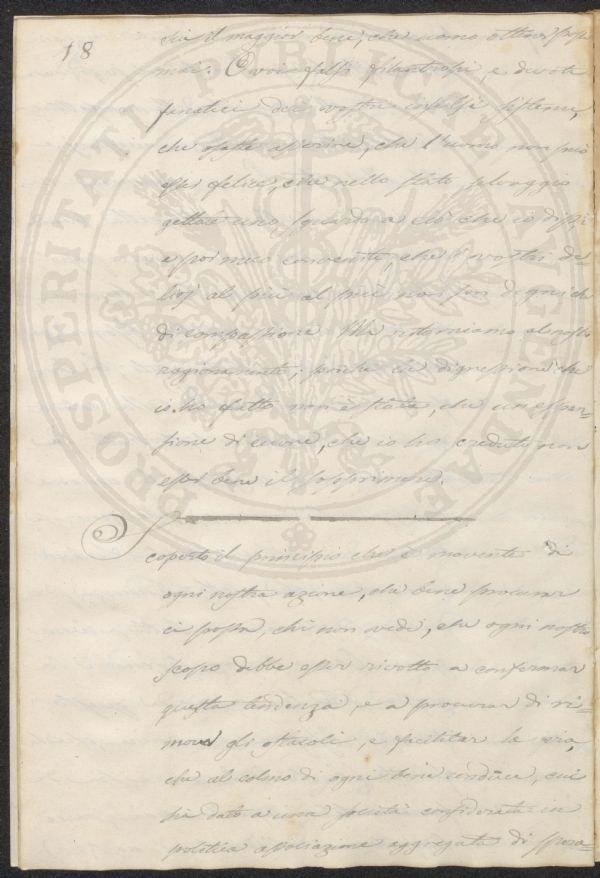 18
sia il maggior bene, che uomo ottener possa
mai. O voi falsi filantropi, e devoti
fanatici de' vostri insulsi sistemi,
che osate asserire, che l'uomo non può
esser felice, che nello stato selvaggio
gettate uno sguardo a ciò che io dissi,
e poi meco converrete, che i vostri de=
lirj al più al più non son degni che
di compassione. Ma ritorniamo al nostro
ragionamento; poiché la digressione che
io ho fatto non è stata, che un'espan=
sione di cuore, che io ho creduto non
esser bene il sopprimere.
Scoperto il principio che è movente di
ogni nostra azione, che bene procurar
ci possa, chi non vede, che ogni nostro
scopo debbe esser rivolto a confermar
questa tendenza, e a procurar di ri=
mover gli ostacoli, e facilitar la via,
che al colmo di ogni bene conduce, cui
sia dato a una società considerata in
politica associazione aggregata di
PROSPERITATI PUBLICAE AUGENDAE